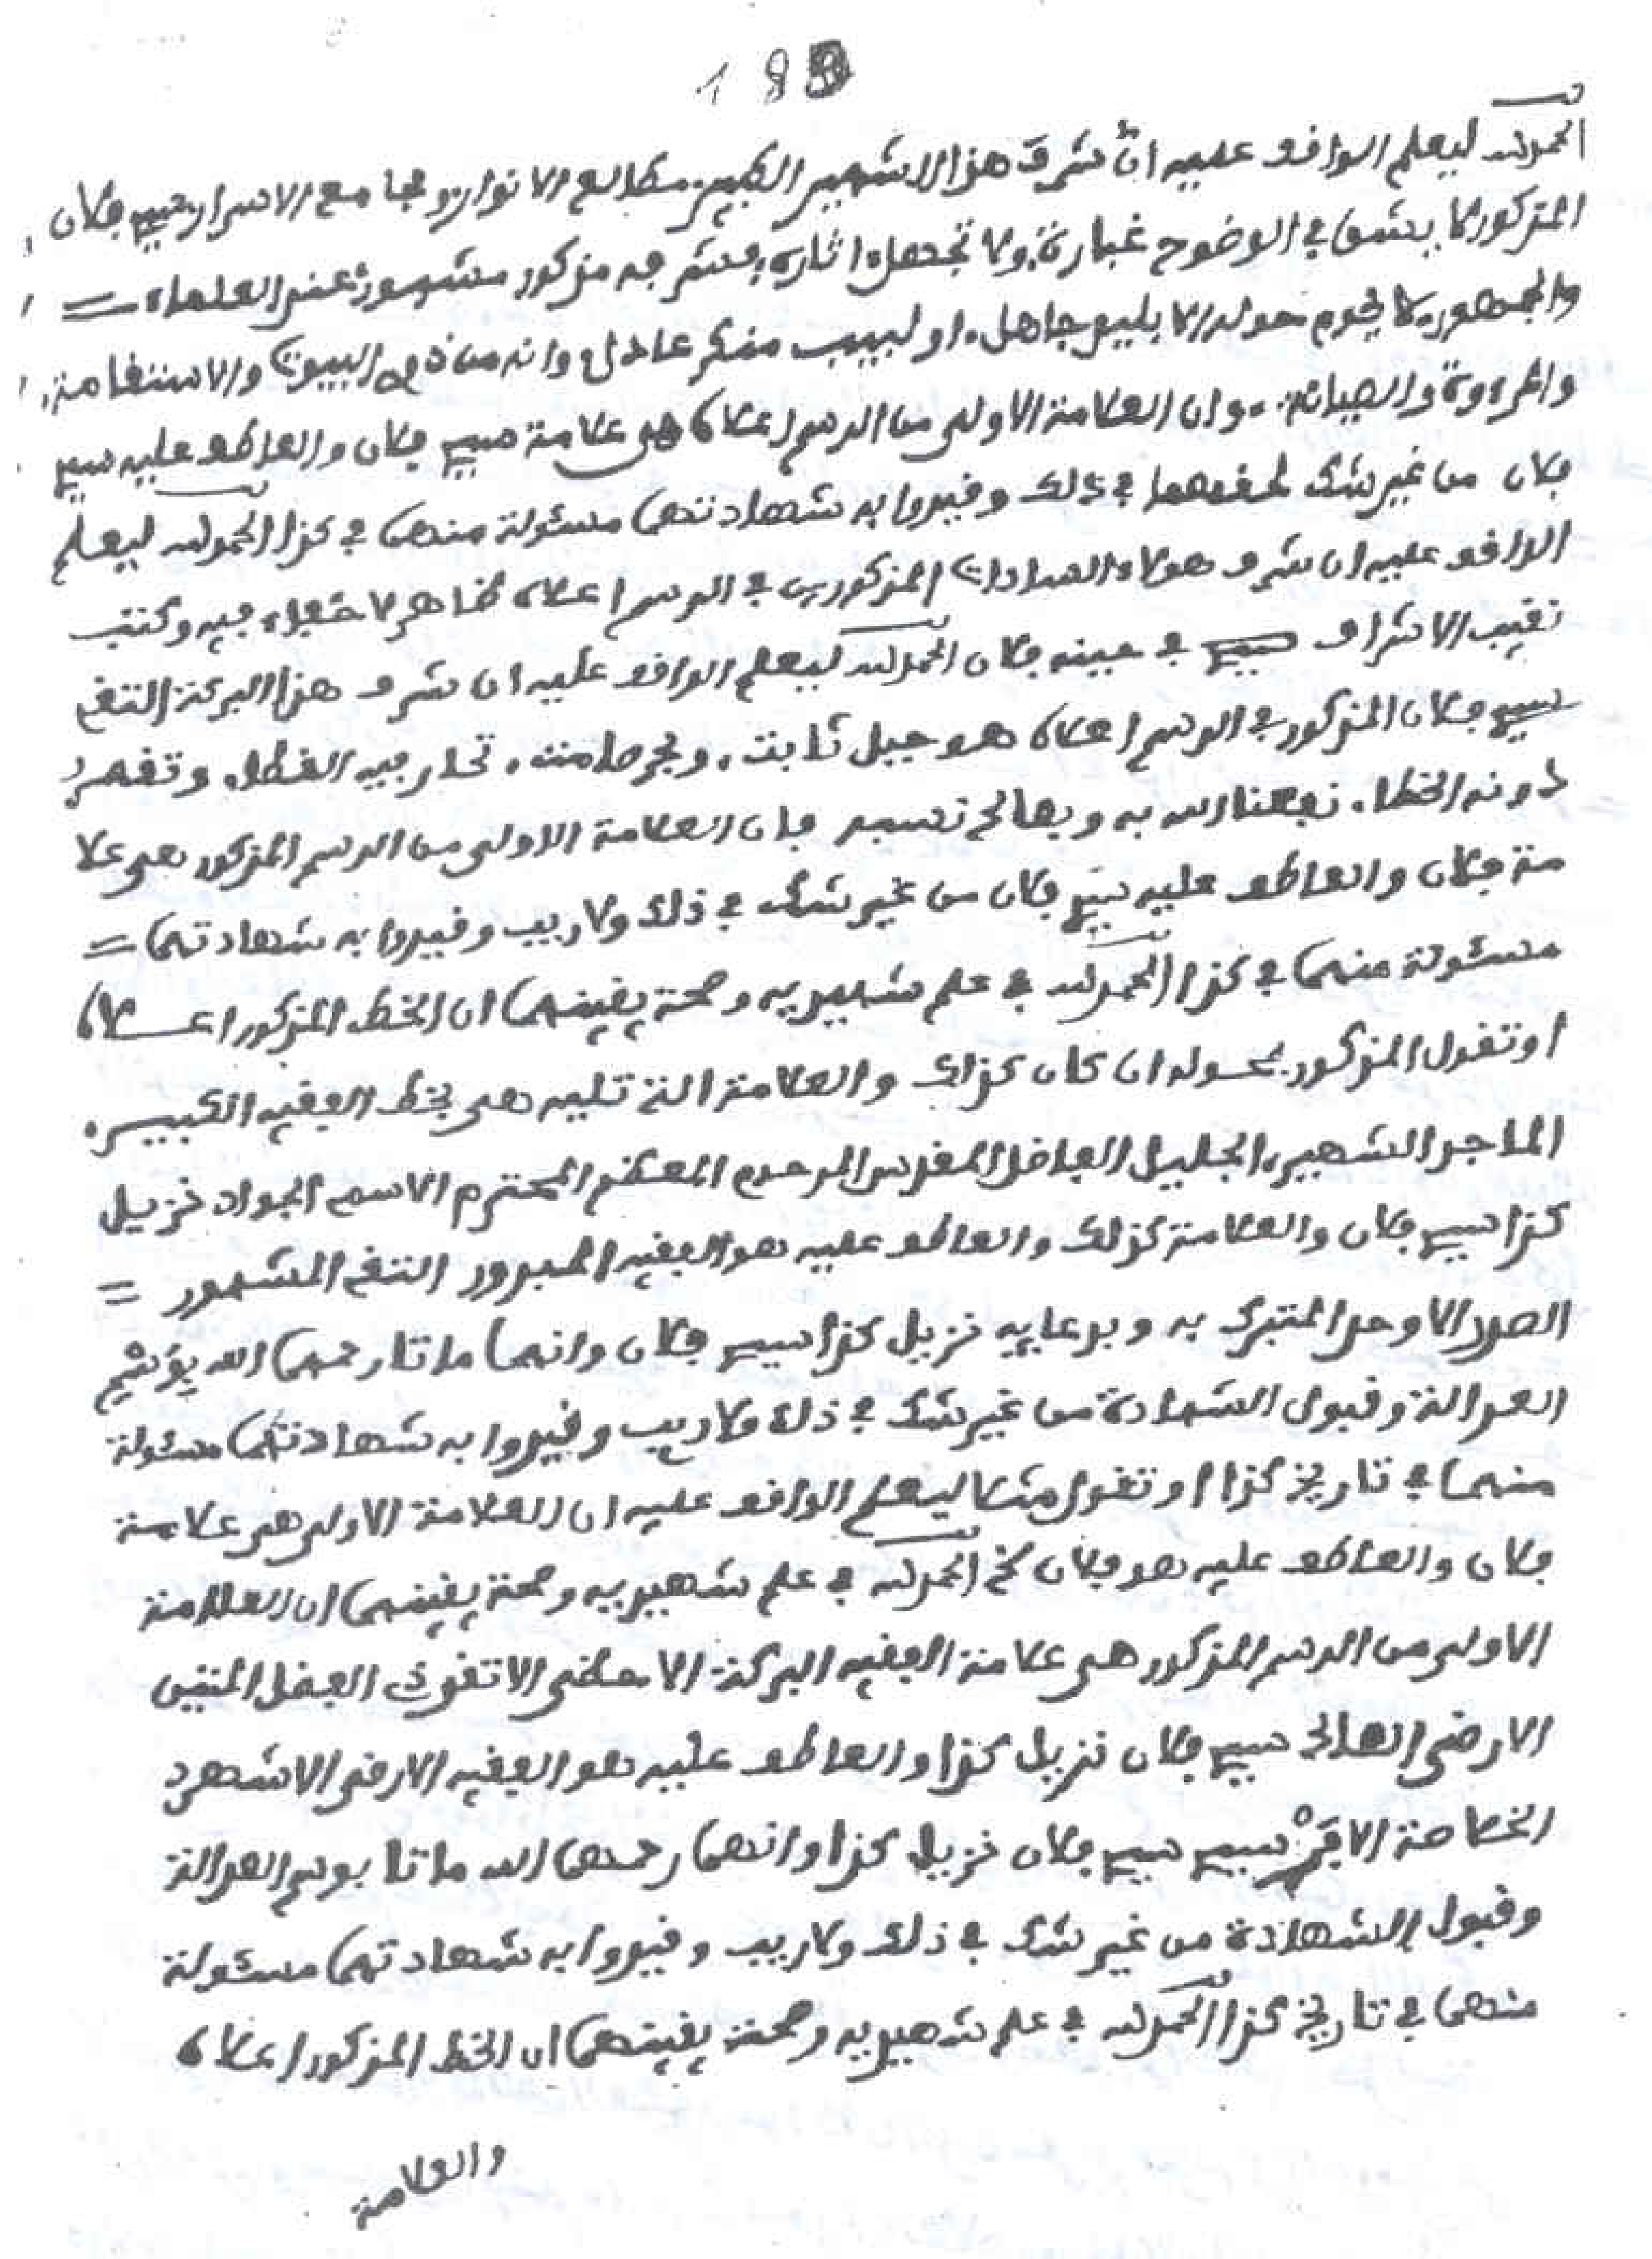 183
الحمد لله ليعلم الواقف عليه ان شرف هذا الشهير الكبير مطالع الانوار ومجامع الاسرار سيدي فلان
المذكور لا يشق في الوضوح غباره ولا تجهل اثاره فشرفه مذكور مشهور عند العلماء =
والجمهور لا يحوم حوله الا بليد جاهل او لبيب منكر عادل وانه من ذوي البيوت والاستقامة
والمروءة والصيانة وان العلامة الاولى من الرسم اعلاه هي علامة سيدي فلان والعاطف عليه سيدي
فلان من غير شك لحقهما في ذلك وقيدوا به شهادتهما مسئولة منهما في كذا الحمد لله ليعلم
الواقف عليه ان شرف هولاء السادات المذكورين في الرسم اعلاه ظاهر لا خفاء فيه وكتب
نقيب الاشراف سيدي في حينه فلان الحمد لله ليعلم الواقف عليه ان شرف هذا البركة التقي
سيدي فلان المذكور في الرسم اعلاه هو جبل ثابت، وبحر صامت، تحار فيه القطا، وتقصر
دونه الخطا، نفعنا الله به وبصالح نسبه فان العلامة الاولى من الرسم المذكور هي علا
مة فلان والعاطف عليه سيدي فلان من غير شك في ذلك ولا ريب وقيدوا به شهادتهما =
مسئولة منهما في كذا الحمد لله في علم شهيديه وصحة يقينهما ان الخط المذكور اعلاه
او تقول المذكور بحوله ان كان كذلك والعلامة التي تليه هي بخط الفقيه الكبير،
الماجد الشهير، الجليل الفاضل المقدس المرحوم المعظم المحترم الاسمى الجواد نزيل
كذا سيدي فلان والعلامة كذلك والعاطف عليه هو الفقيه المبرور التقي المشهور =
الصدر الاوحد المتبرك به وبدعايه نزيل كذا سيدي فلان وانهما ماتا رحمهما الله بوشم
العدالة وقبول الشهادة من غير شك في ذلك ولا ريب وقيدوا به شهادتهما مسئولة
منهما في تاريخ كذا او تقول مثلا ليعلم الواقف عليه ان العلامة الاولى هي علامة
فلان والعاطف عليه هو فلان لخ الحمد لله في علم شهيديه وصحة يقينهما ان العلامة
الاولى من الرسم المذكور هي علامة الفقيه البركة الاحظى الاتقى الفضل المتين
الارضى الصالح سيدي فلان نزيل كذا والعاطف عليه هو الفقيه الارضى الاشهر
سيدي سيدي فلان نزيل كذا وانهما رحمهما الله ماتا بوسم العدالة
وقبول الشهادة من غير شك في ذلك ولا ريب وقيدوا به شهادتهما مسئولة
منهما في تاريخ كذا الحمد لله في علم شهيديه وصحة يقينهما ان الخط المذكور اعلاه
والعلامة